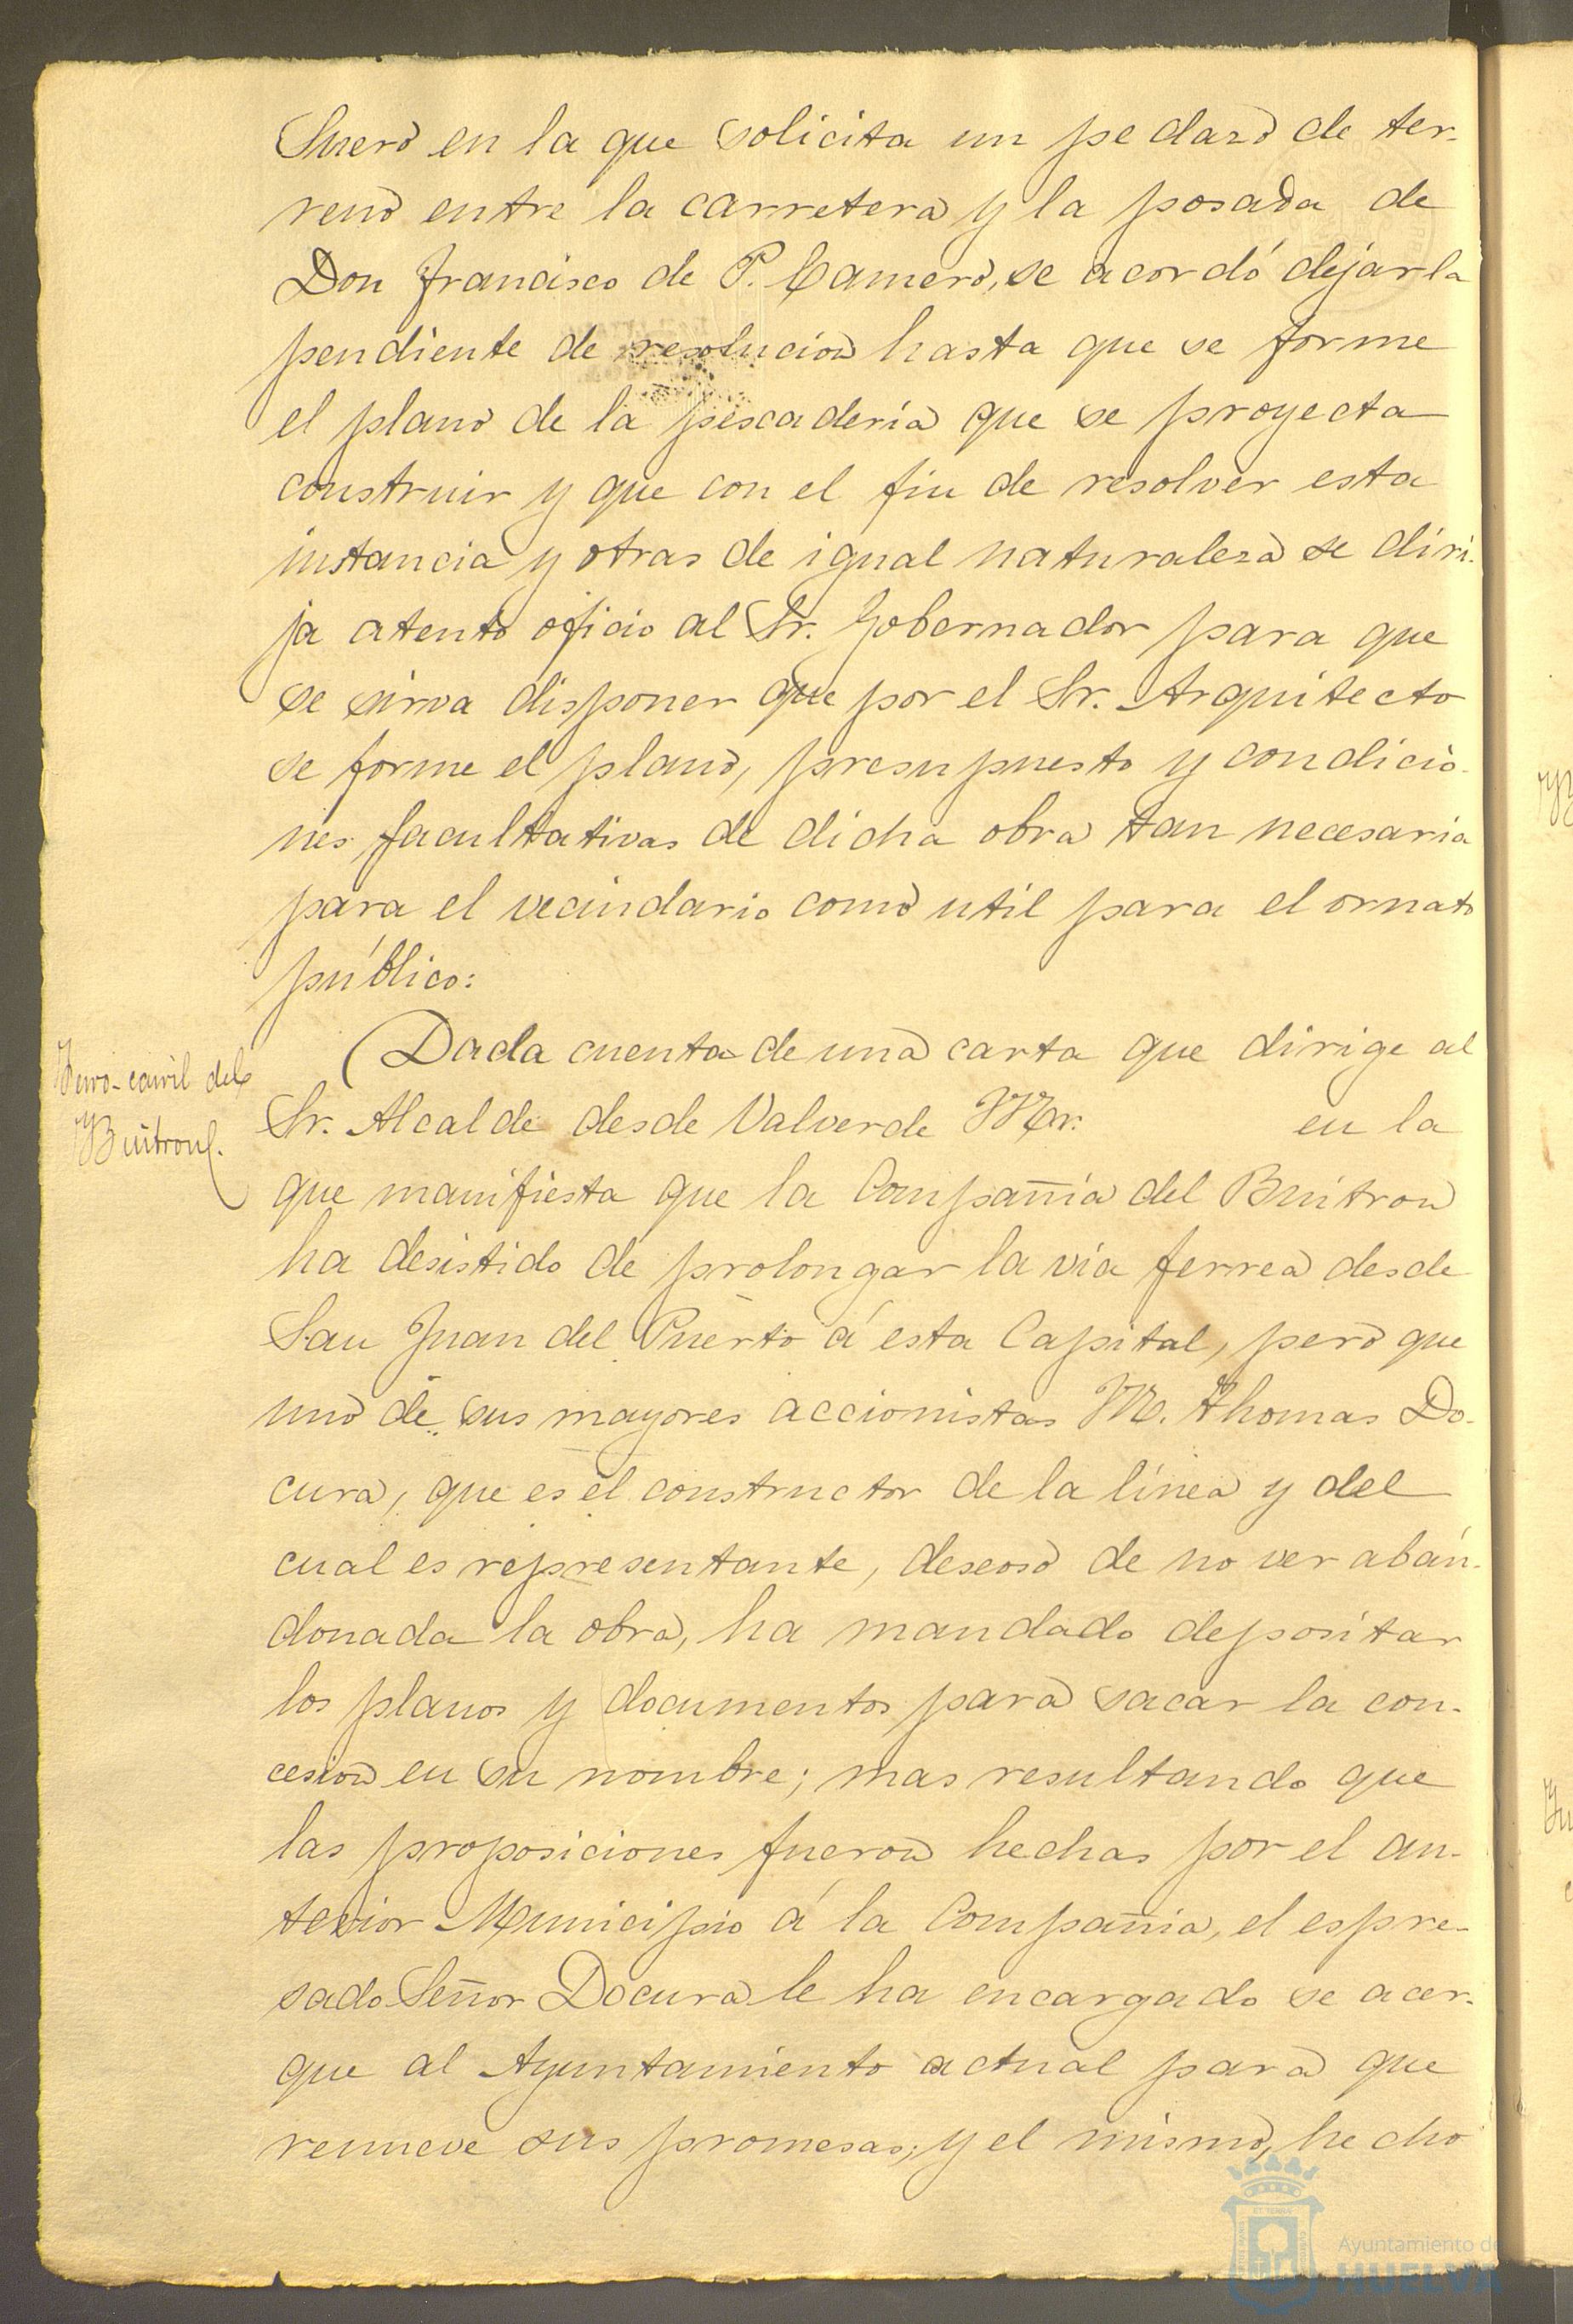 Suero en la que solicita un pedazo de ter-
reno entre la carretera y la posada de
Don Francisco de P. Camero, se acordó dejarla
pendiente de resolucion hasta que se forme
el plano de la pescadería que se proyecta
construir y que con el fin de resolver esta
instancia y otras de igual naturaleza se diri-
ja atento oficio al Sr. Gobernador para que
se sirva disponer que por el Sr. Arquitecto
se forme el plano, presupuesto y condicio-
nes facultativas de dicha obra tan necesaria
para el vecindario como util para el ornato
público:
Ferro-carril del
Buitron.
Dada cuenta de una carta que dirige al
Sr. Alcalde desde Valverde Mr. en la
que manifiesta que la Compañía del Buitron
ha desistido de prolongar la vía ferrea desde
San Juan del Puerto á esta Capital, pero que
uno de sus mayores accionistas M. Thomas Do-
cura, que es el constructor de la línea y del
cual es representante, deseoso de no ver aban-
donada la obra, ha mandado depositar
los planos y documentos para sacar la con-
cesion en su nombre; mas resultando que
las proposiciones fueron hechas por el an-
terior Municipio á la Compañia, el espre-
sado Señor Docura le ha encargado se acer-
que al Ayuntamiento actual para que
renueve sus promesas; y el mismo, hecho
Ayuntamiento de
HUELVA